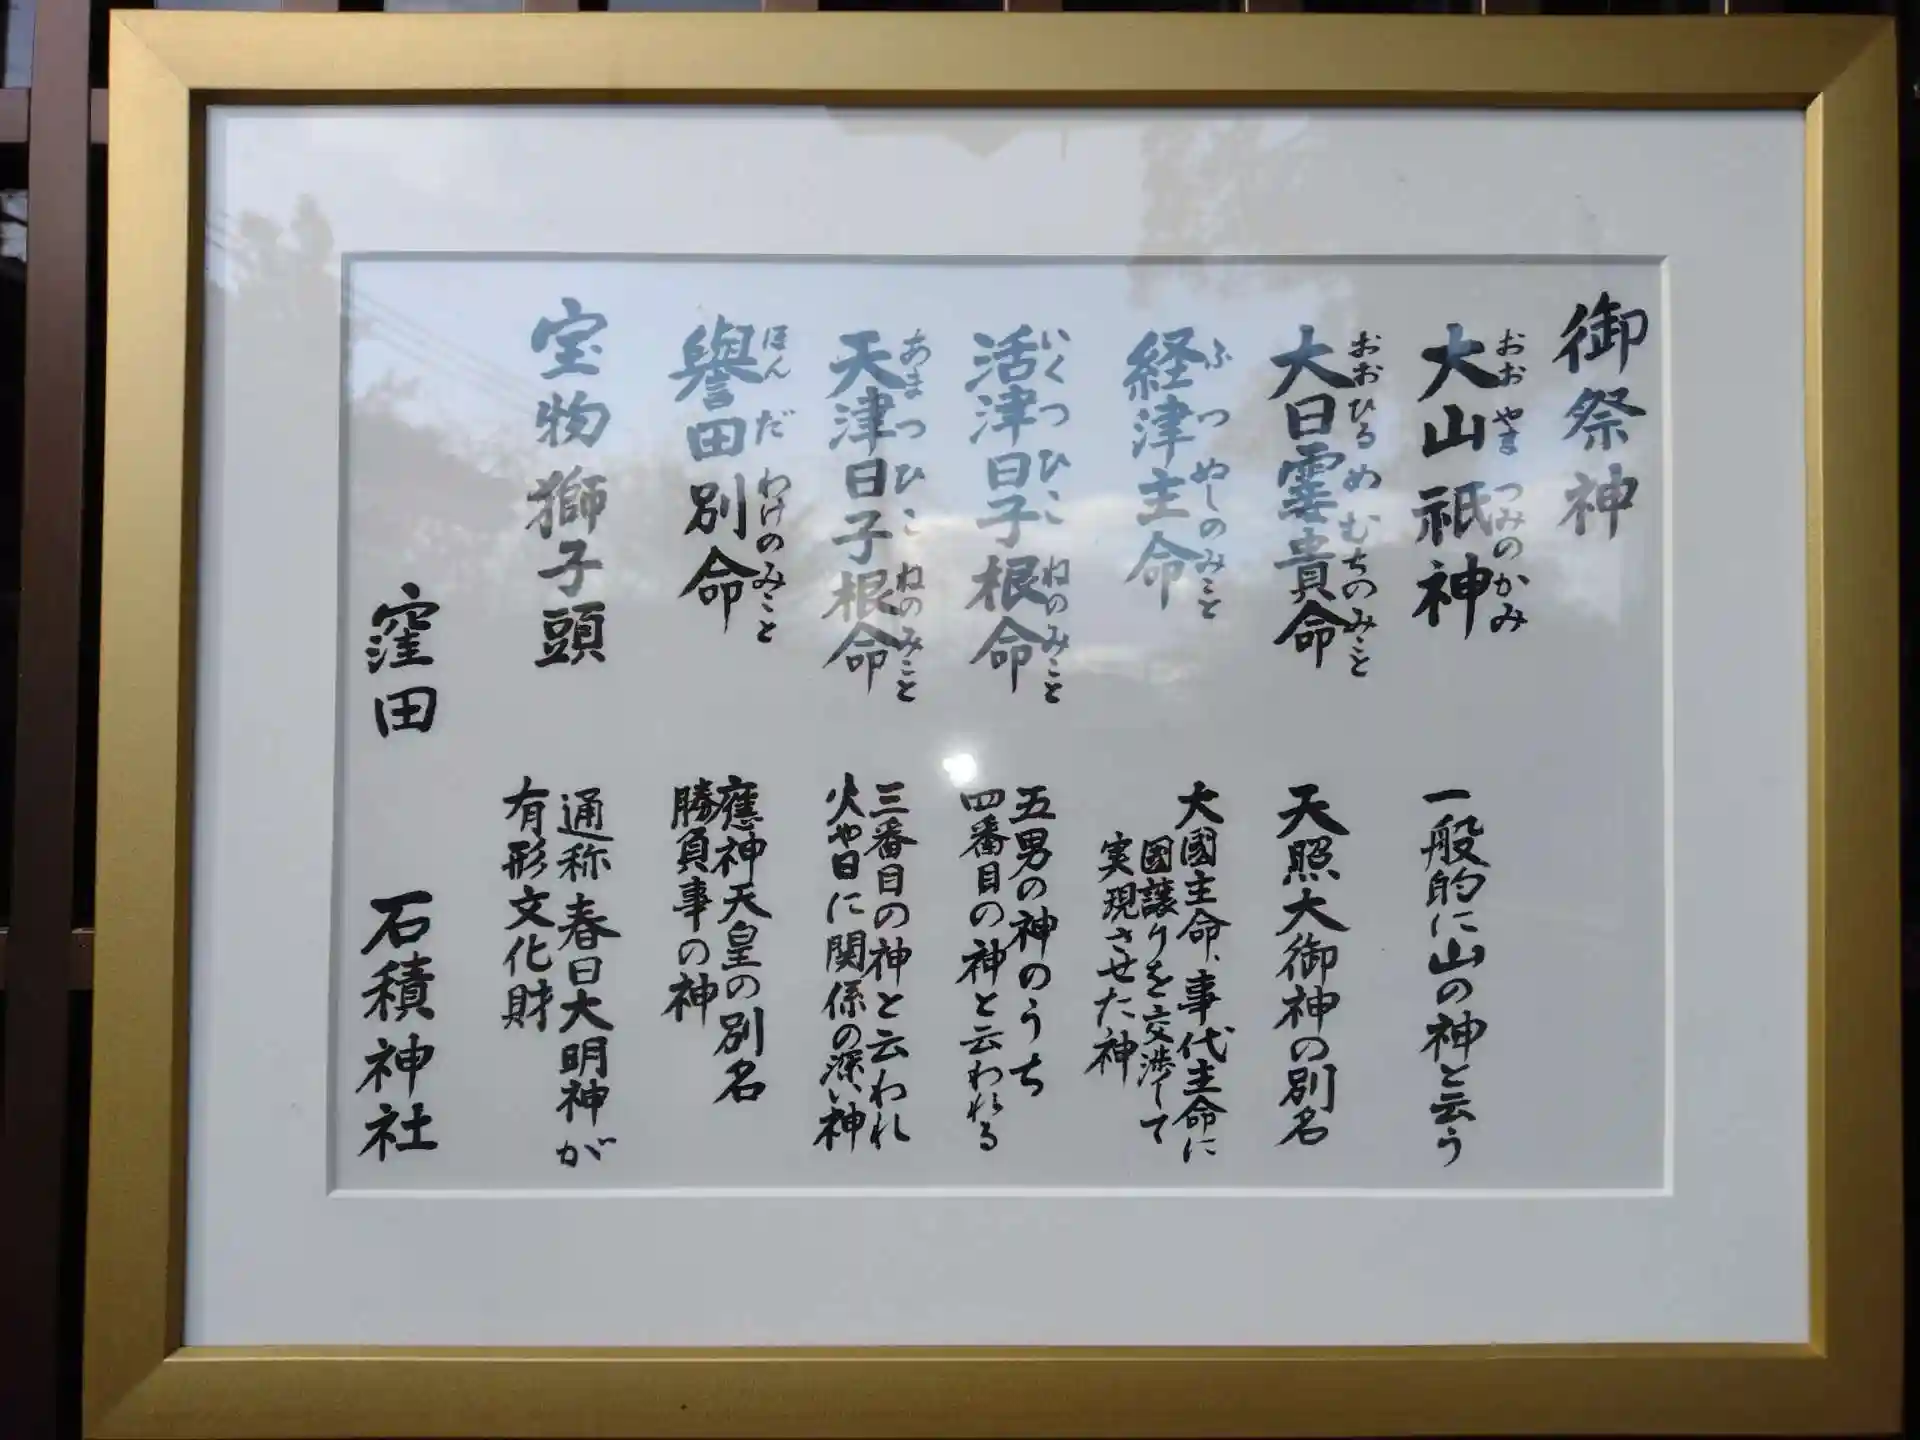 御祭神
大山祇神
おおやまつみのかみ
一般的に山の神と云う
大日孁貴命
おおひるめむちのみこと
天照大御神の別名
経津主命
ふつぬしのみこと
大國主命、事代主命に
国譲りを交渉して
実現させた神
活津日子根命
いくつひこねのみこと
五男の神のうち
四番目の神と云われる
天津日子根命
あまつひこねのみこと
三番目の神と云われ
火や日に関係の深い神
譽田別命
ほんだわけのみこと
應神天皇の別名
勝負事の神
宝物獅子頭
通称春日大明神が
有形文化財
窪田 石積神社